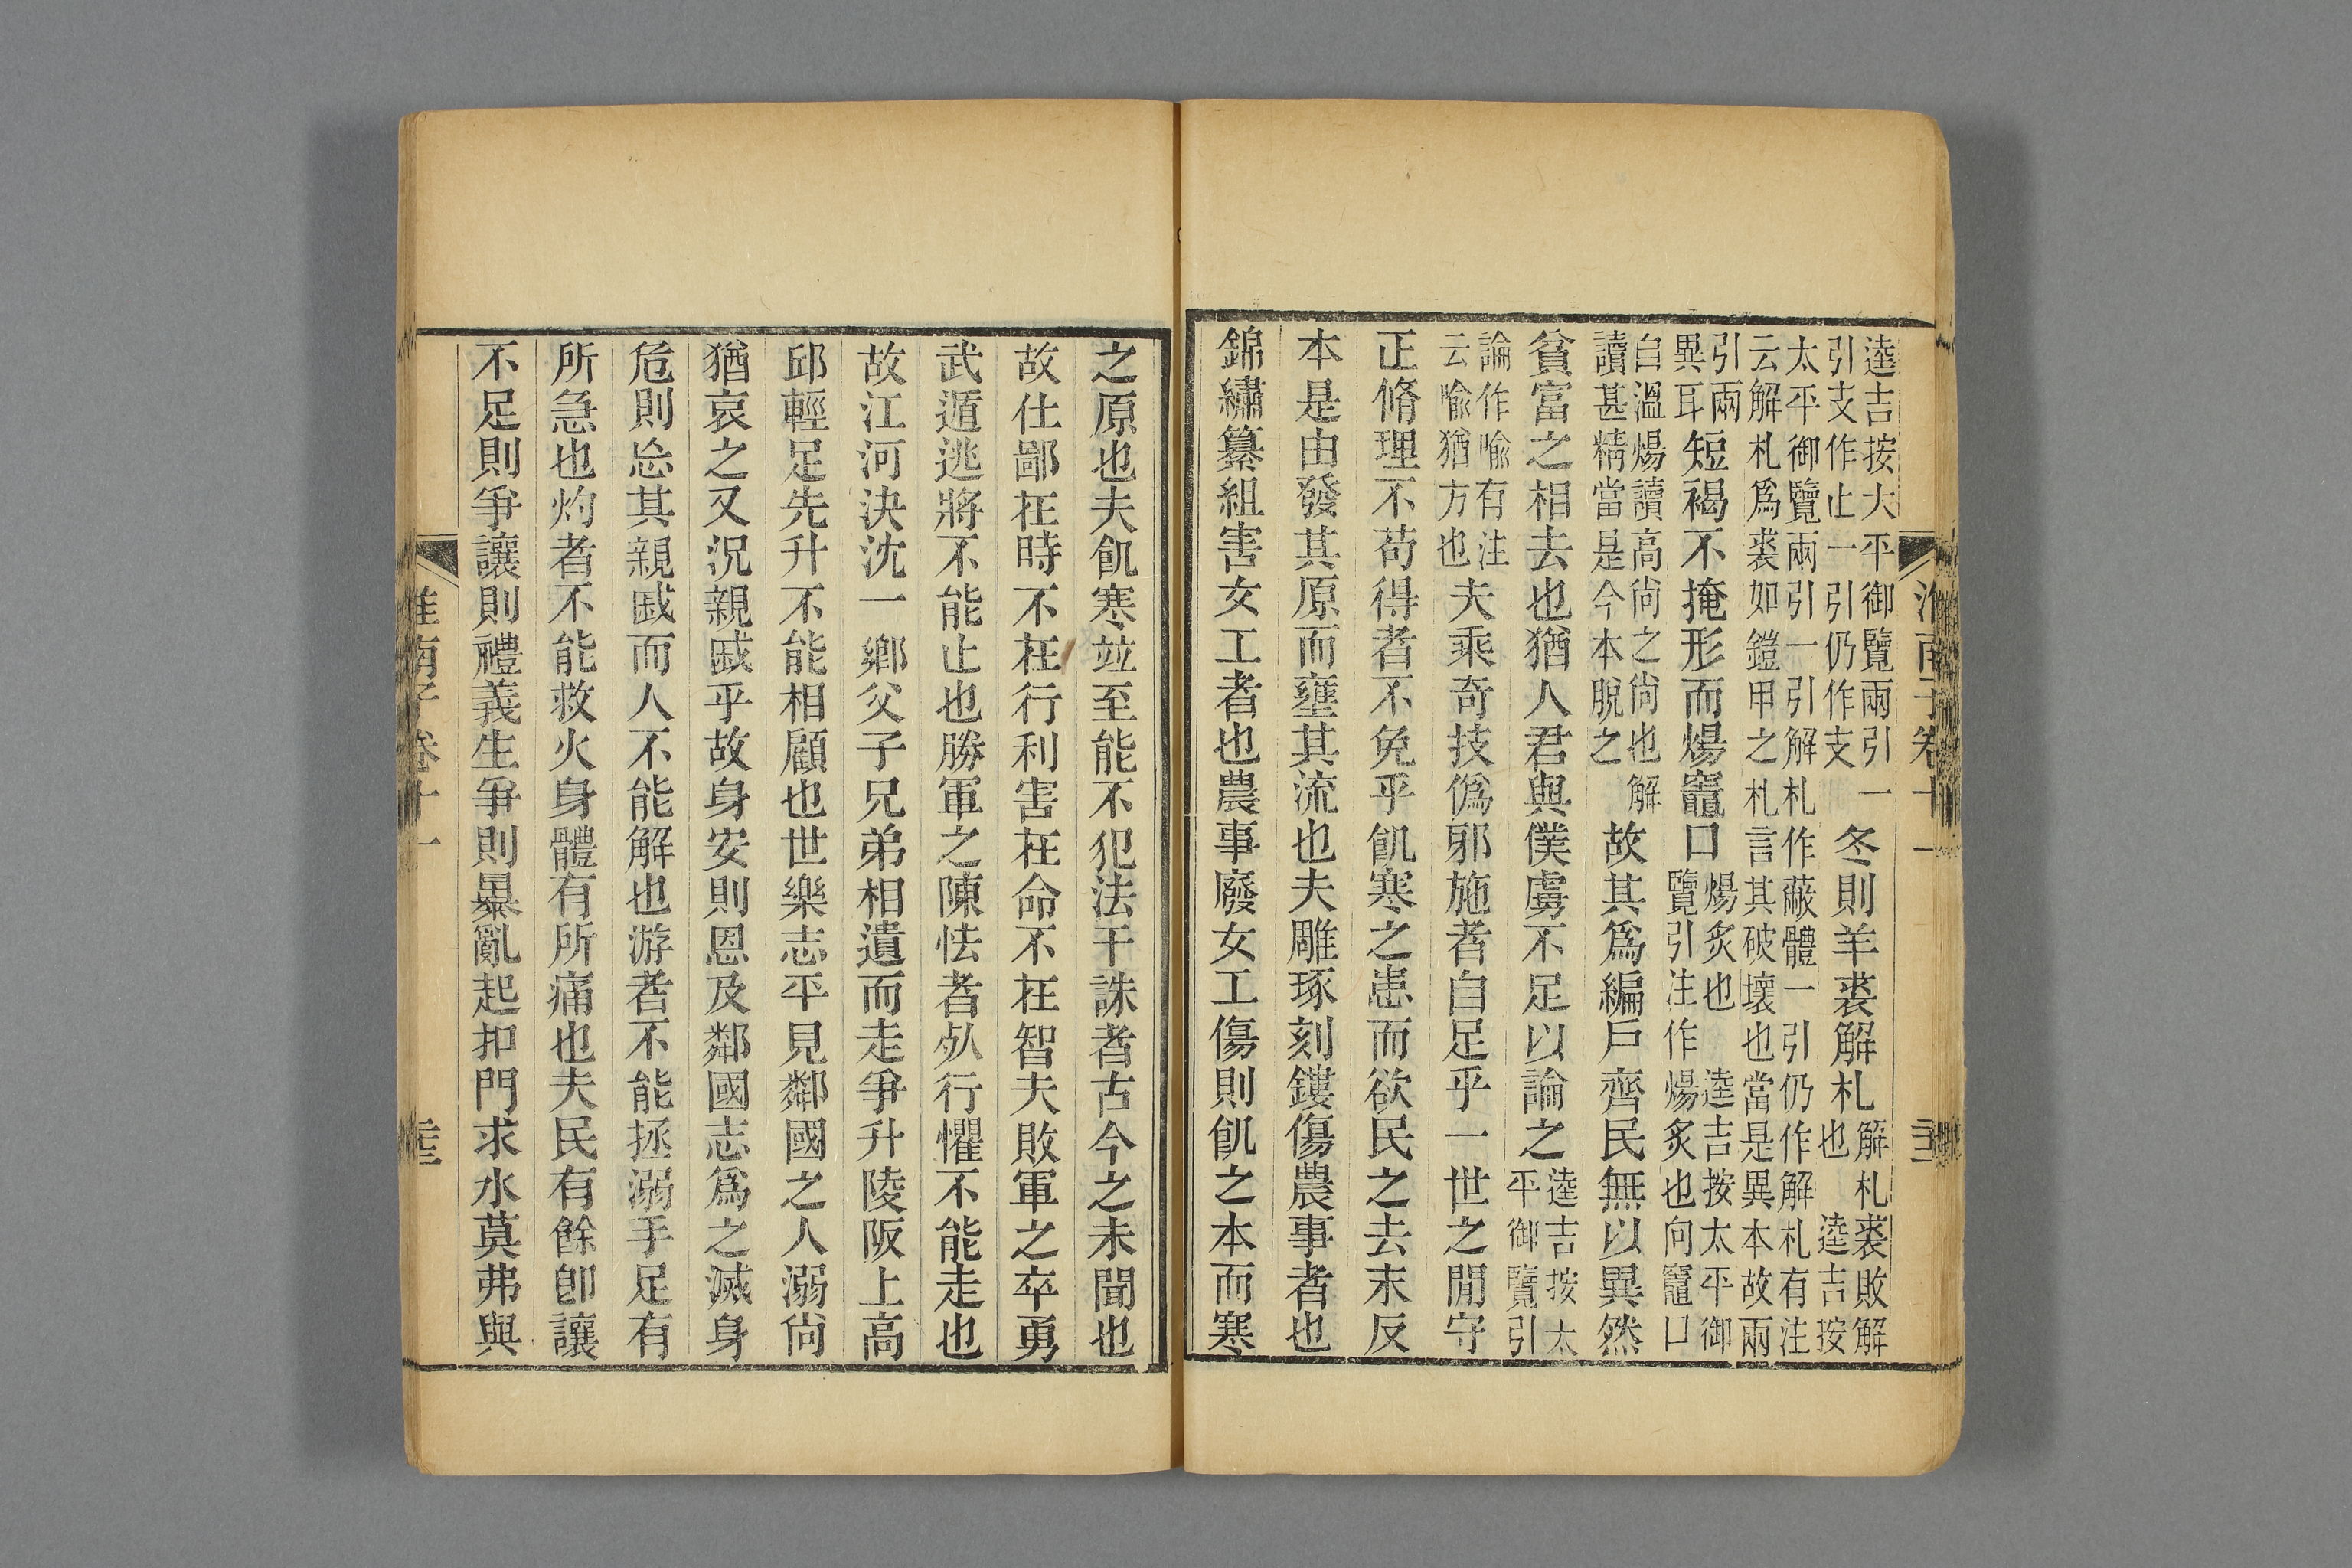 淮南子卷十一
逵吉按大平御覽兩引一引支作止一引仍作支冬則羊裘解札解札裘敗解也 逵吉按
太平御覽兩引一引解札作蔽體一引仍作解札有注云解札爲裘如鎧甲之札言其破壞也當是異本故兩
引兩異耳短褐不掩形而煬竈口煬炙也 逵吉按太平御覽引注作煬炙也向竈口
自溫煬讀高尙之尙也 解讀甚精當是今本脫之故其爲編戶齊民無以異然
貧富之相去也猶人君與僕虜不足以論之逵吉按太平御覽引
論作喻有注云喻猶方也夫乘奇技僞邪施者自足乎一世之閒守
正脩理不苟得者不免乎飢寒之患而欲民之去末反
本是由發其原而壅其流也夫雕琢刻鏤傷農事者也
錦繡纂組害女工者也農事廢女工傷則飢之本而寒
之原也夫飢寒竝至能不犯法干誅者古今之未聞也
故仕鄙在時不在行利害在命不在智夫敗軍之卒勇
武遁逃將不能止也勝軍之陳怯者死行懼不能走也
故江河決沈一鄉父子兄弟相遺而走爭升陵阪上高
邱輕足先升不能相顧也世樂志平見鄰國之人溺尙
猶哀之又況親戚乎故身安則恩及鄰國志爲之滅身
危則忘其親戚而人不能解也游者不能拯溺手足有
所急也灼者不能救火身體有所痛也夫民有餘卽讓
不足則爭讓則禮義生爭則暴亂起扣門求水莫弗與
淮南子卷十一